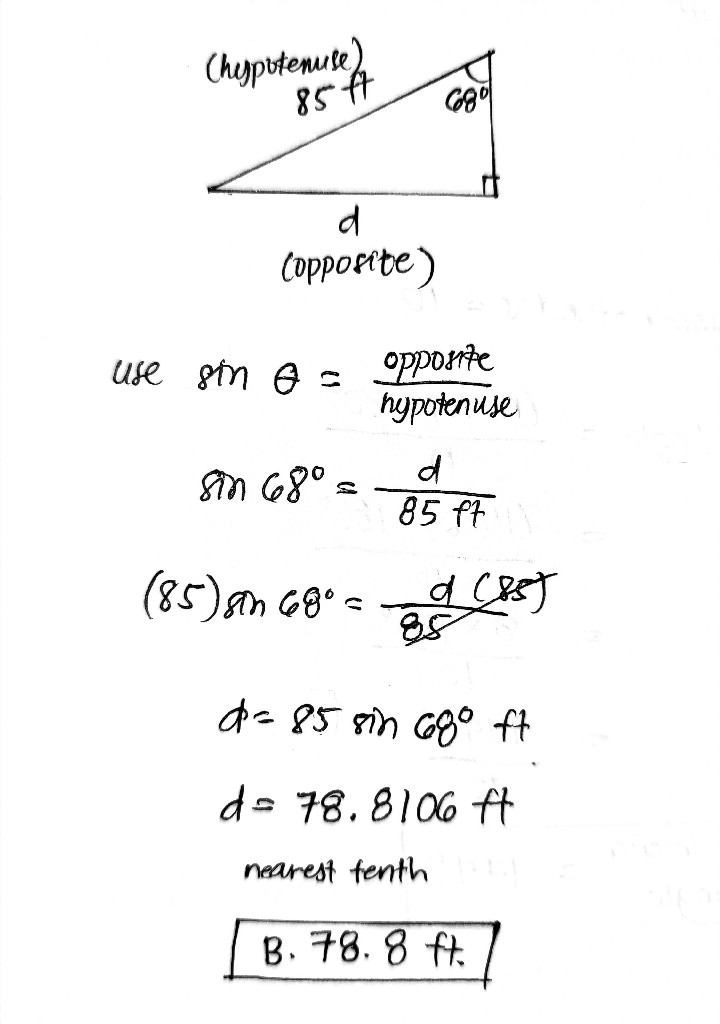 (hypotenuse)
85 ft
68°
d
(opposite)
use sin θ = opposite / hypotenuse
sin 68° = d / 85 ft
(85) sin 68° = d (85) / 85
d = 85 sin 68° ft
d = 78.8106 ft
nearest tenth
B. 78.8 ft.